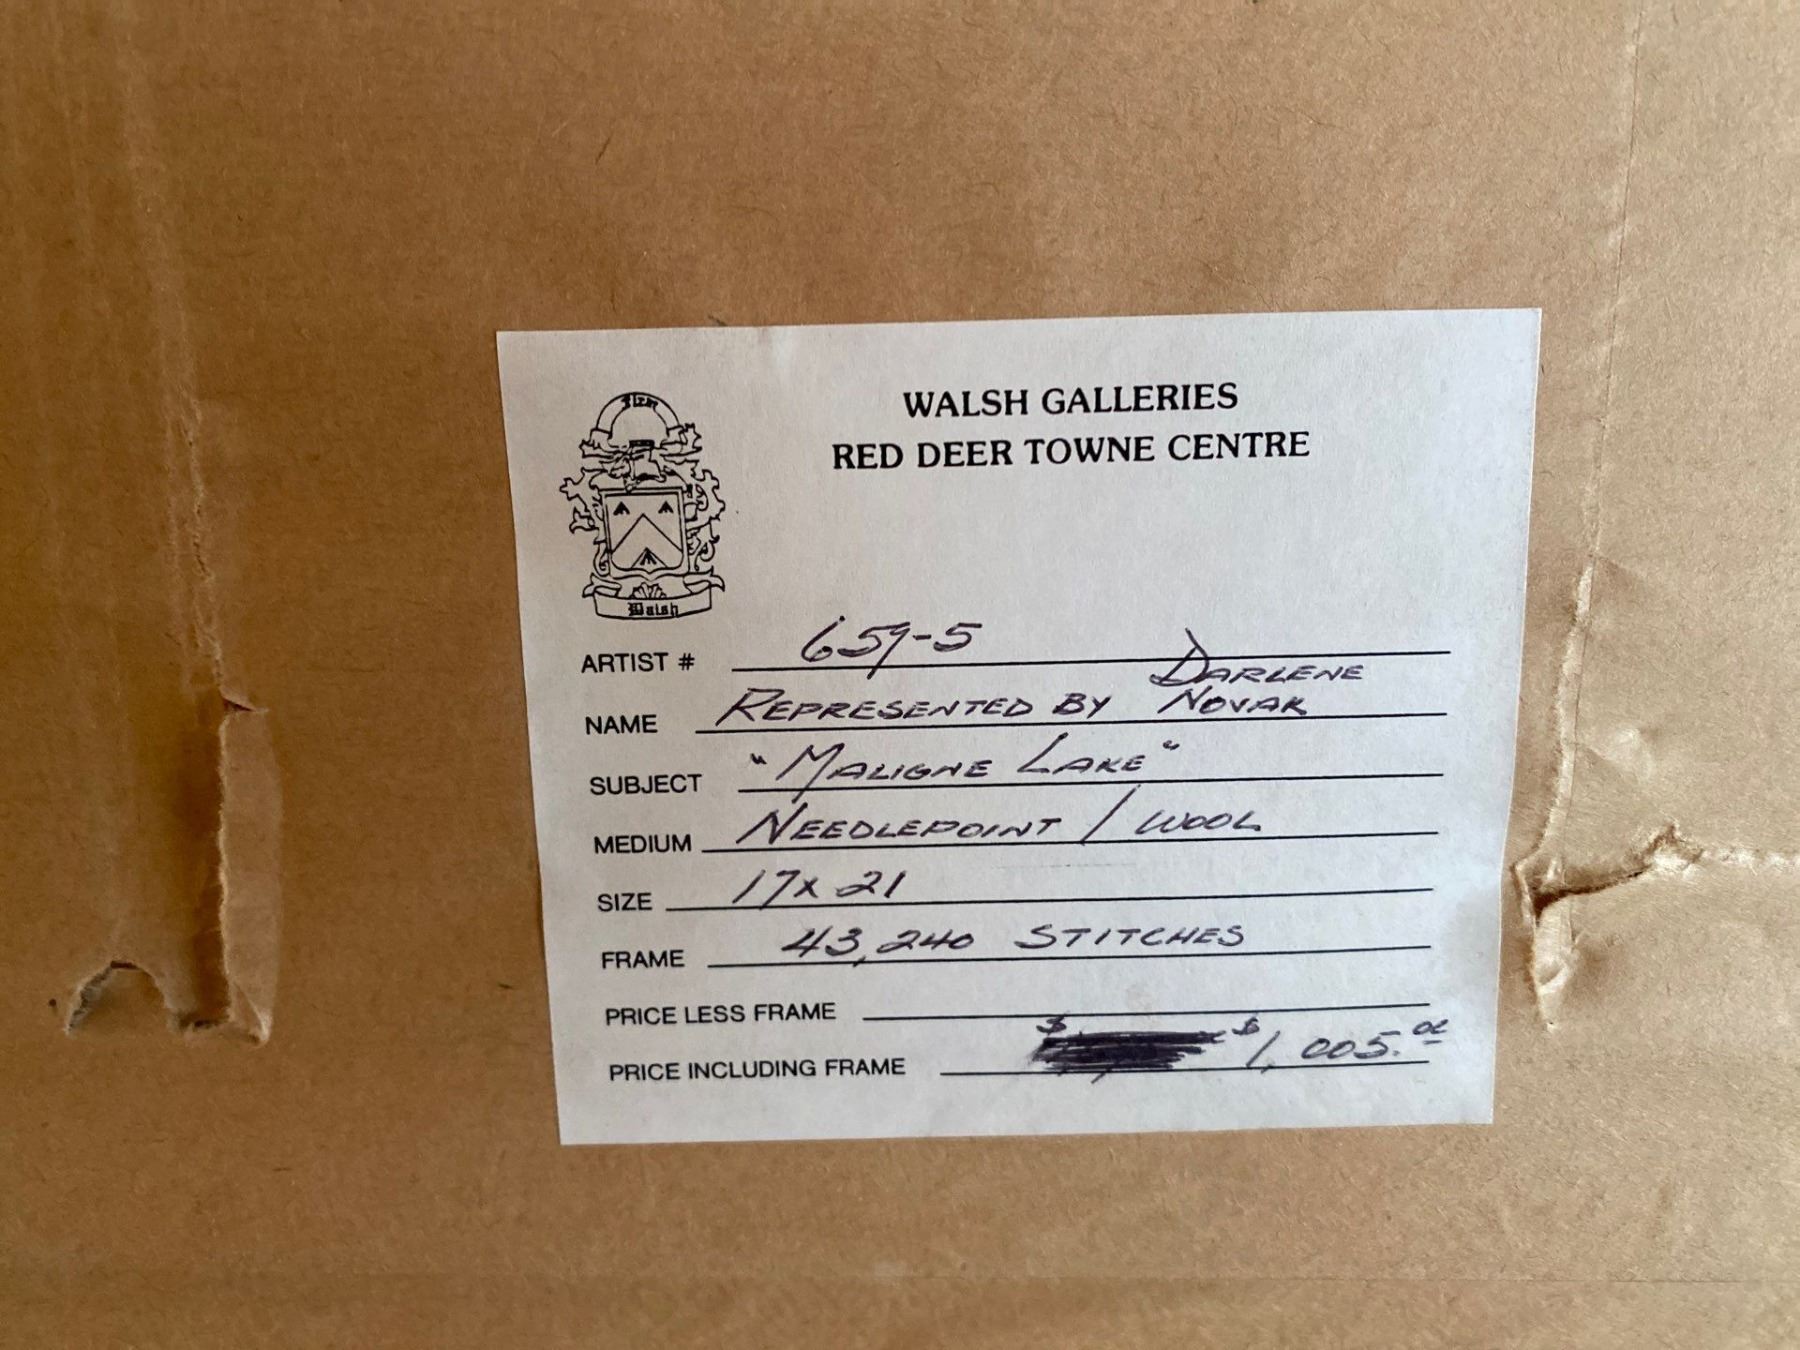 Firm
WALSH GALLERIES
RED DEER TOWNE CENTRE
Walsh
ARTIST # 659-5
NAME REPRESENTED BY DARLENE NOVAK
SUBJECT "MALIGNE LAKE"
MEDIUM NEEDLEPOINT / WOOL
SIZE 17x21
FRAME 43,240 STITCHES
PRICE LESS FRAME
PRICE INCLUDING FRAME $ $1,005.00